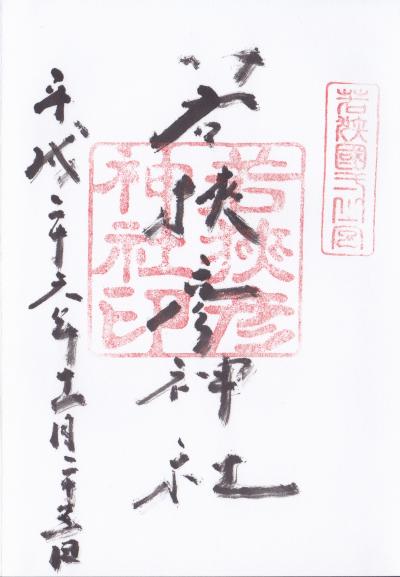 若狭國
若狭彦神社
若狭彦
神社印
平成二十六年十一月二十日